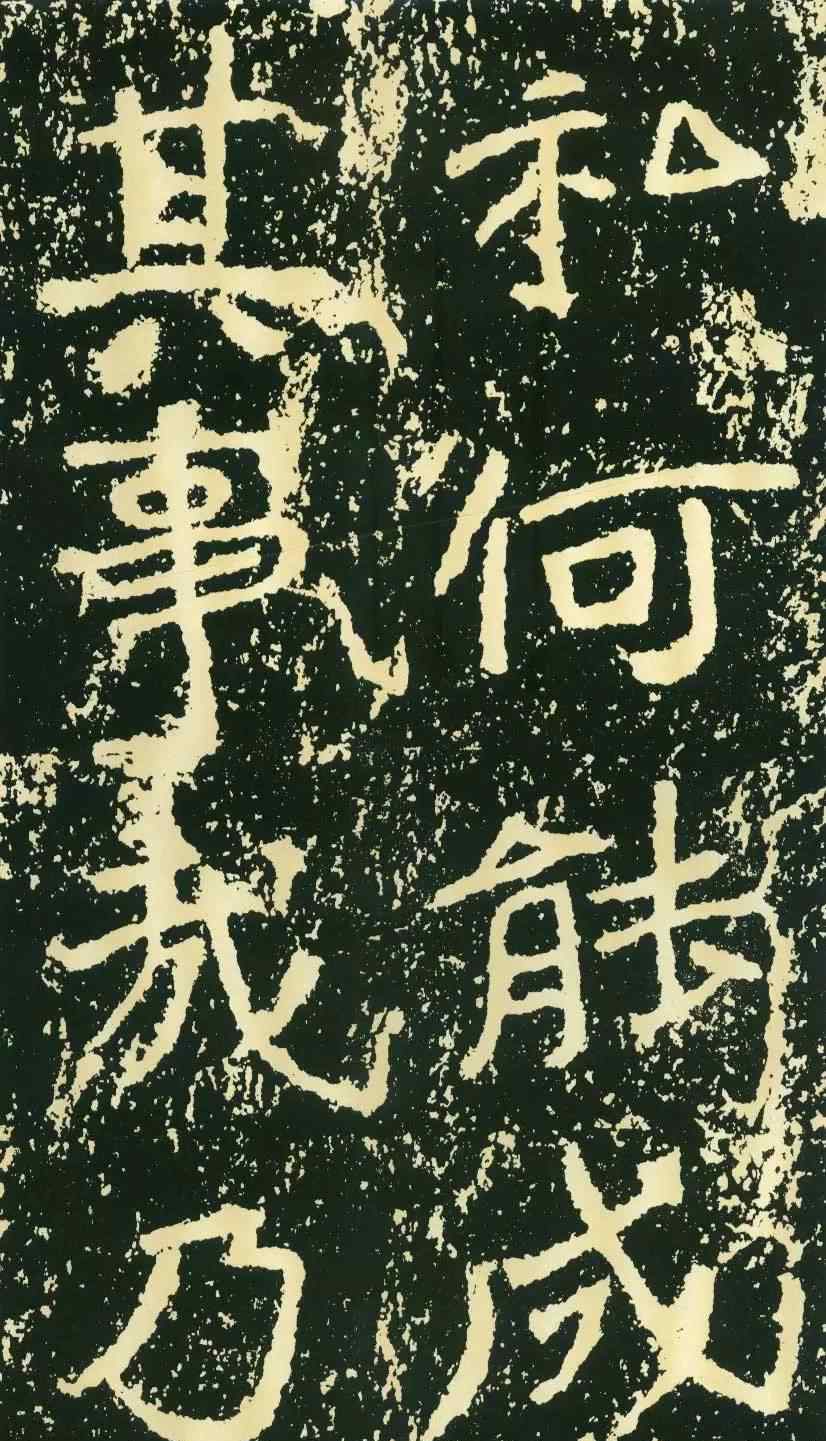 私何能成
其事㢤乃